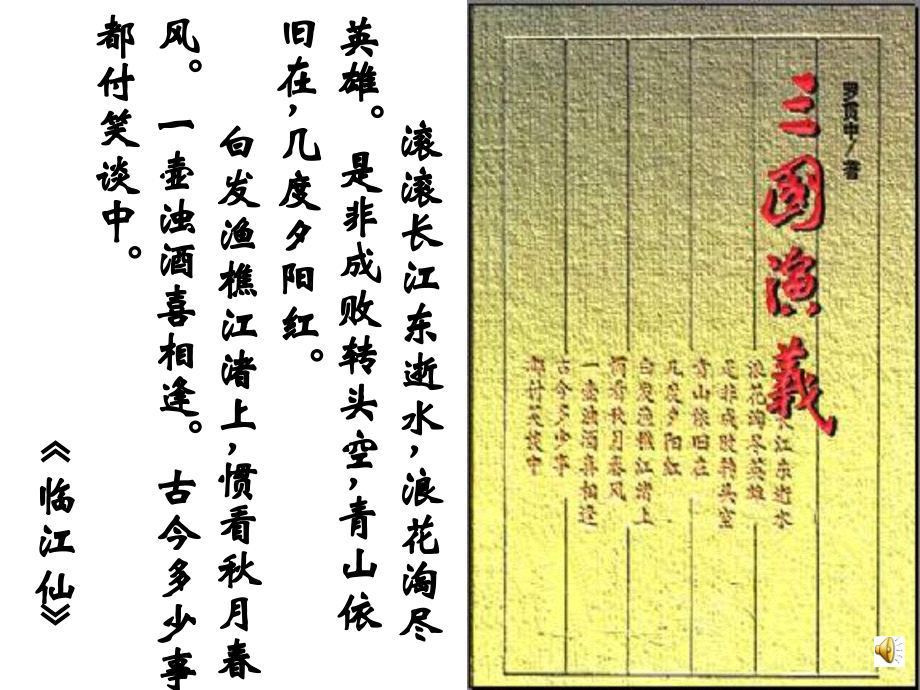 滚滚长江东逝水，浪花淘尽
英雄。是非成败转头空，青山依
旧在，几度夕阳红。
白发渔樵江渚上，惯看秋月春
风。一壶浊酒喜相逢。古今多少事
都付笑谈中。
《临江仙》
罗贯中/著
三國演義
江东逝水
浪花淘尽英雄
是非成败转头空
青山依旧在
几度夕阳红
白发渔樵江渚上
看秋月春风
一壶浊酒喜相逢
古今多少事
都付笑谈中